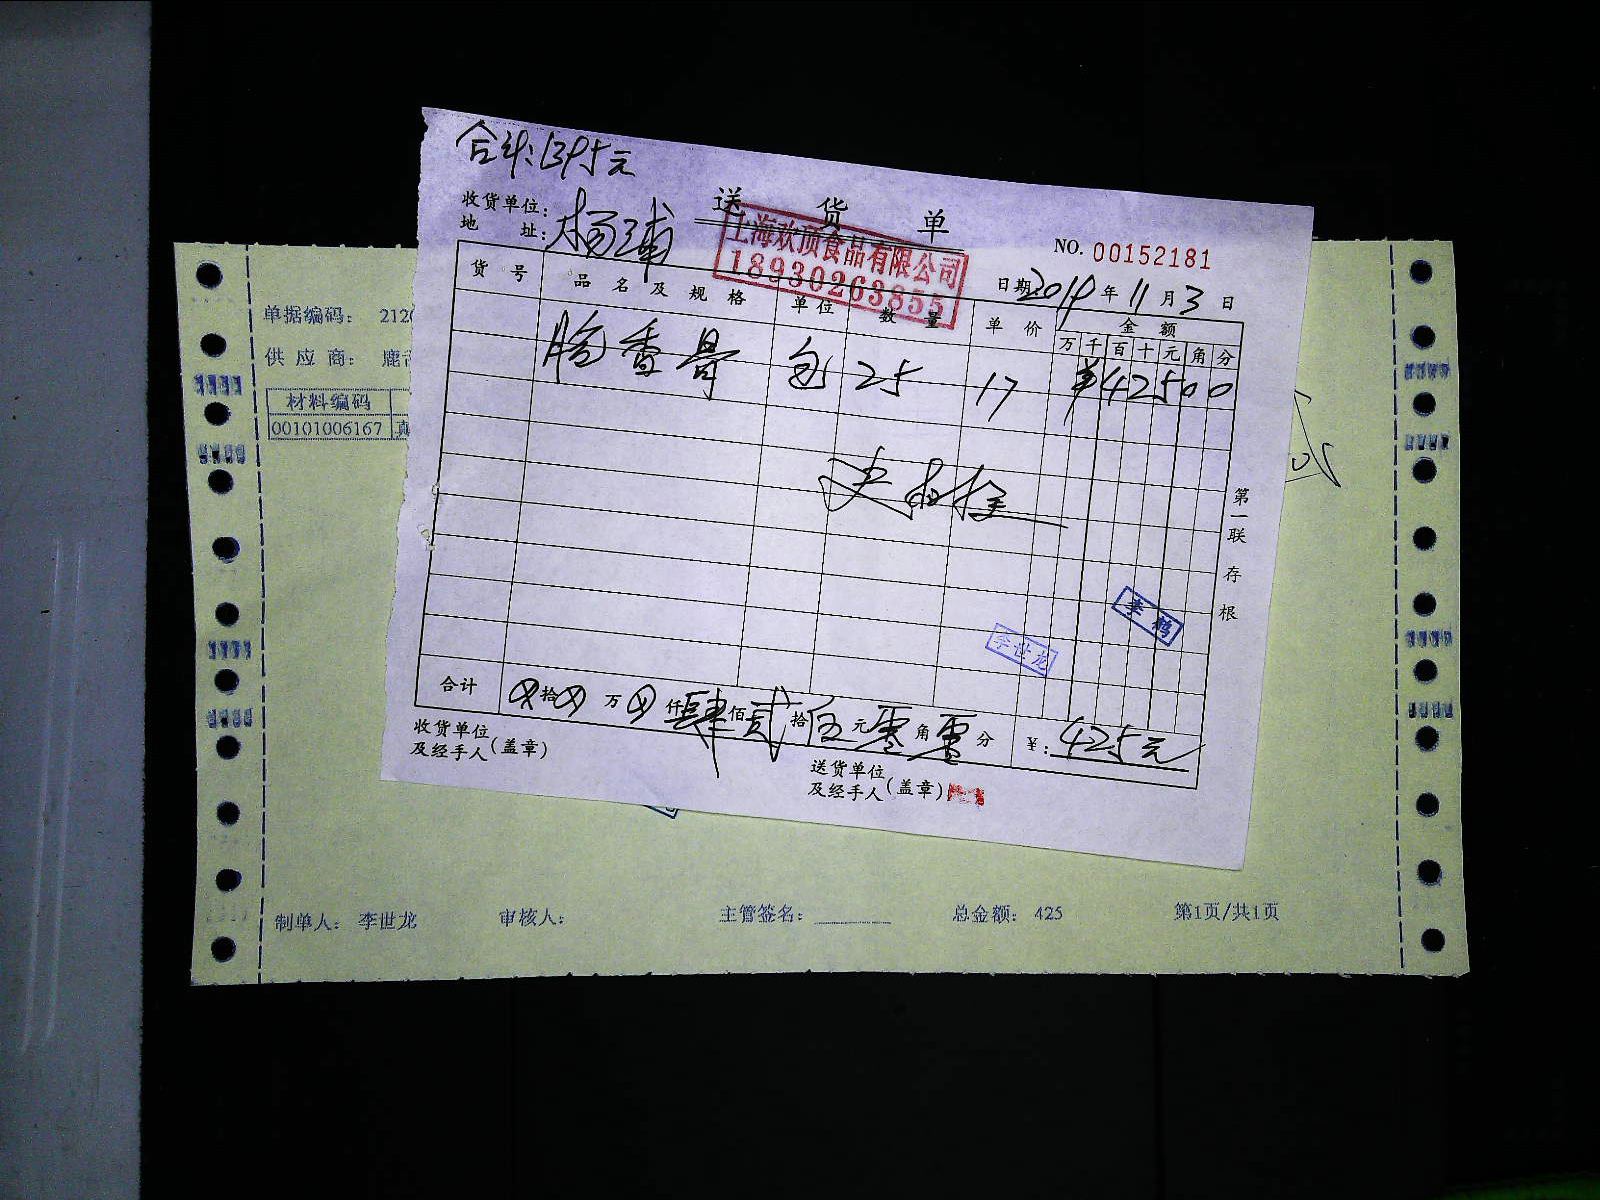 合计:1395元
送货单
收货单位:
地址:
杨浦
上海欢顶食品有限公司
18930263855
NO. 00152181
日期 2019 年 11 月 3 日
货号 品名及规格 单位 数量 单价 金额
万 千 百 十 元 角 分
香骨 包 25 17 ¥42500
第一联存根
李鹤
李世龙
合计 拾 万 仟 肆 佰 贰 拾 伍 元 零 角 零 分 ¥: 425元
收货单位
及经手人(盖章)
送货单位
及经手人(盖章)
单据编码: 212
供应商: 鹿
材料编码
00101006167 真
制单人: 李世龙 审核人: 主管签名: 总金额: 425 第1页/共1页